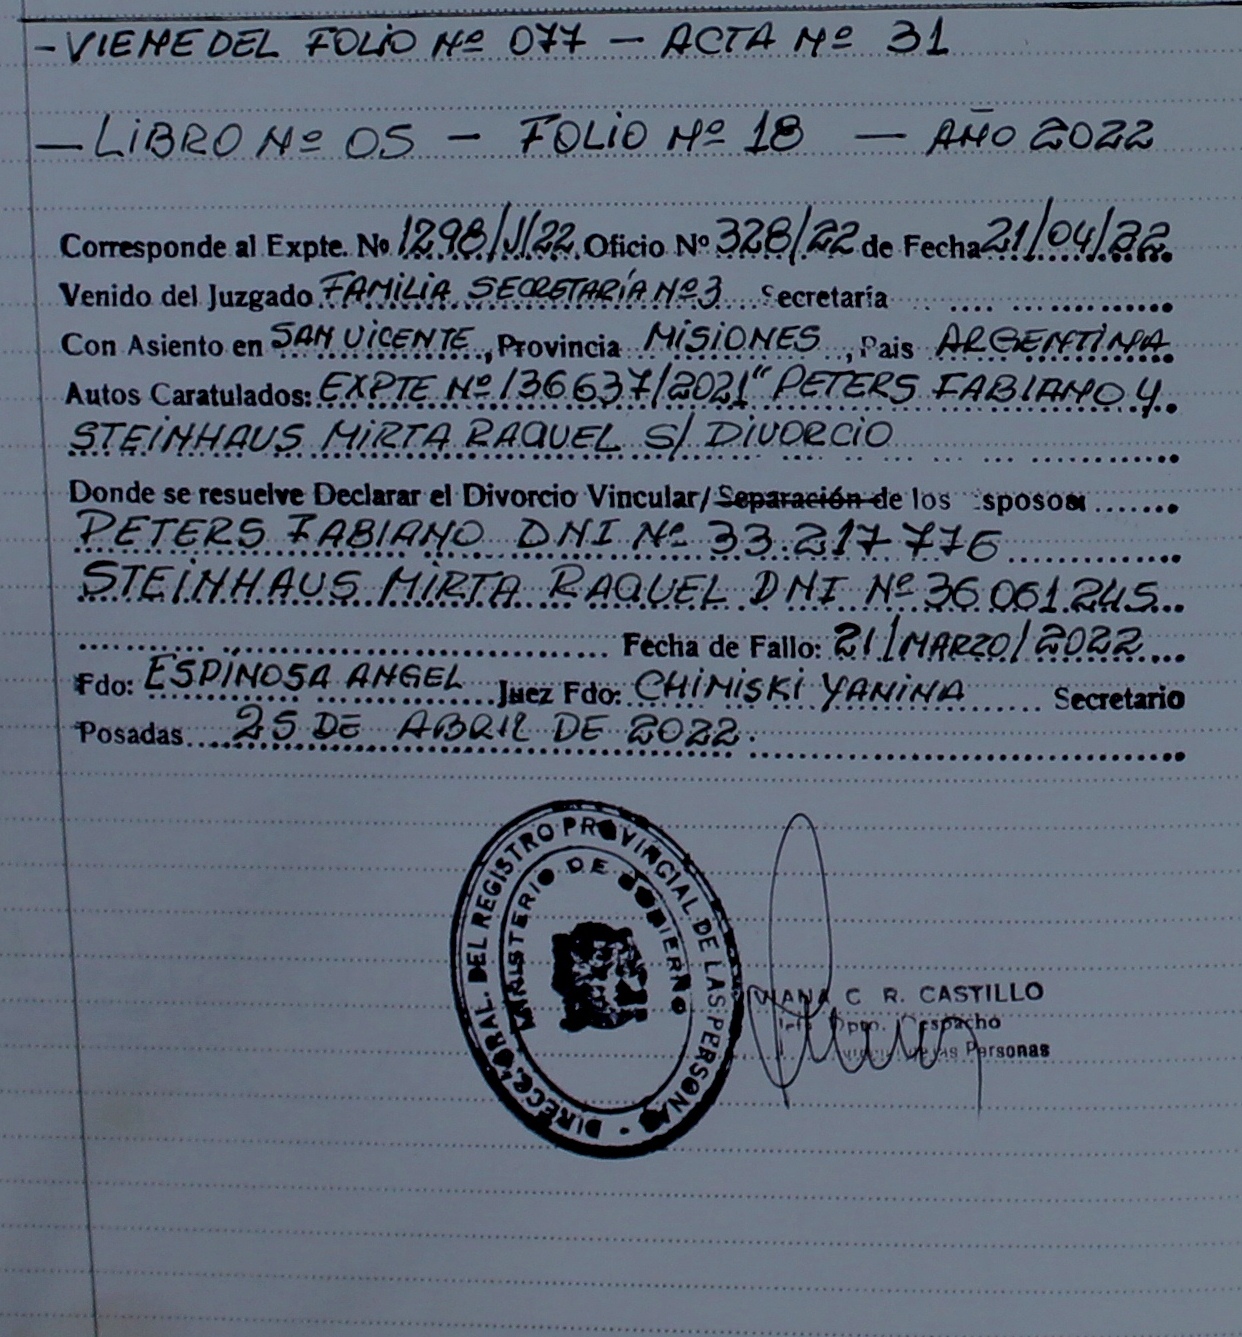 - VIENE DEL FOLIO Nº 077 - ACTA Nº 31
- LIBRO Nº 05 - FOLIO Nº 18 - AÑO 2022
Corresponde al Expte. Nº 1298/J/22 Oficio Nº 328/22 de Fecha 21/04/22
Venido del Juzgado FAMILIA SECRETARÍA Nº3 Secretaría
Con Asiento en SAN VICENTE, Provincia MISIONES, Pais ARGENTINA
Autos Caratulados: EXPTE Nº 136637/2021 " PETERS FABIANO Y
STEINHAUS MIRTA RAQUEL S/ DIVORCIO
Donde se resuelve Declarar el Divorcio Vincular/Separación de los sposos
PETERS FABIANO DNI Nº 33.217 776
STEINHAUS MIRTA RAQUEL DNI Nº 36.061.245
Fecha de Fallo: 21/MARZO/2022
Fdo: ESPINOSA ANGEL Juez Fdo: CHIMISKI YANINA Secretario
Posadas 25 DE ABRIL DE 2022.
DIRECC. GRAL. DEL REGISTRO PROVINCIAL DE LAS PERSONAS
MINISTERIO DE GOBIERNO
C R. CASTILLO
Dpto. Despacho
de las Personas